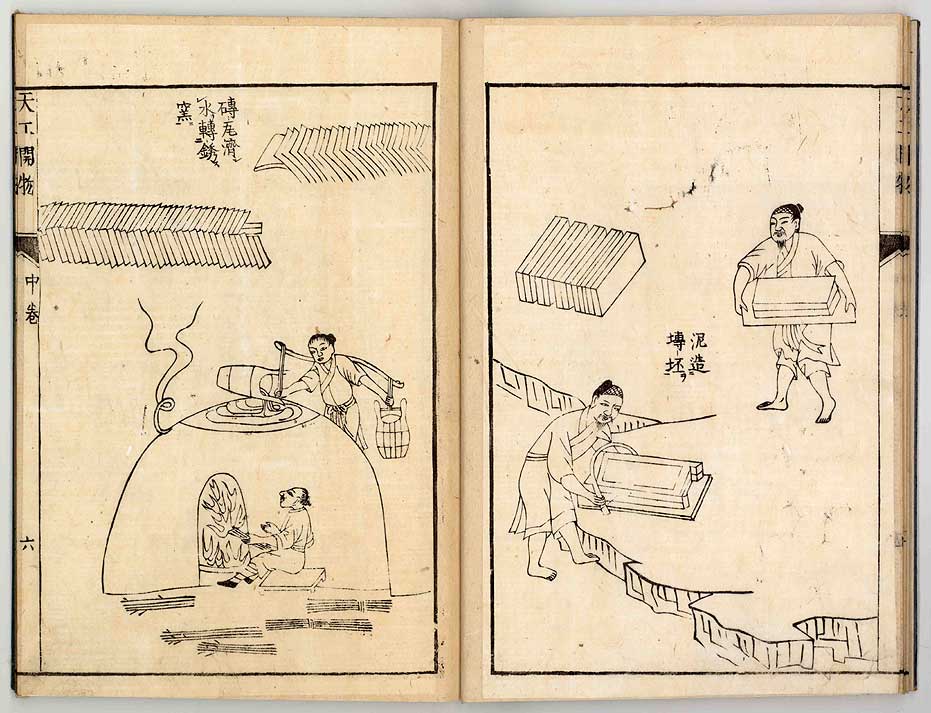 泥造
塼坯
磚瓦濟
水轉銹
窯
天工開物
中卷
六